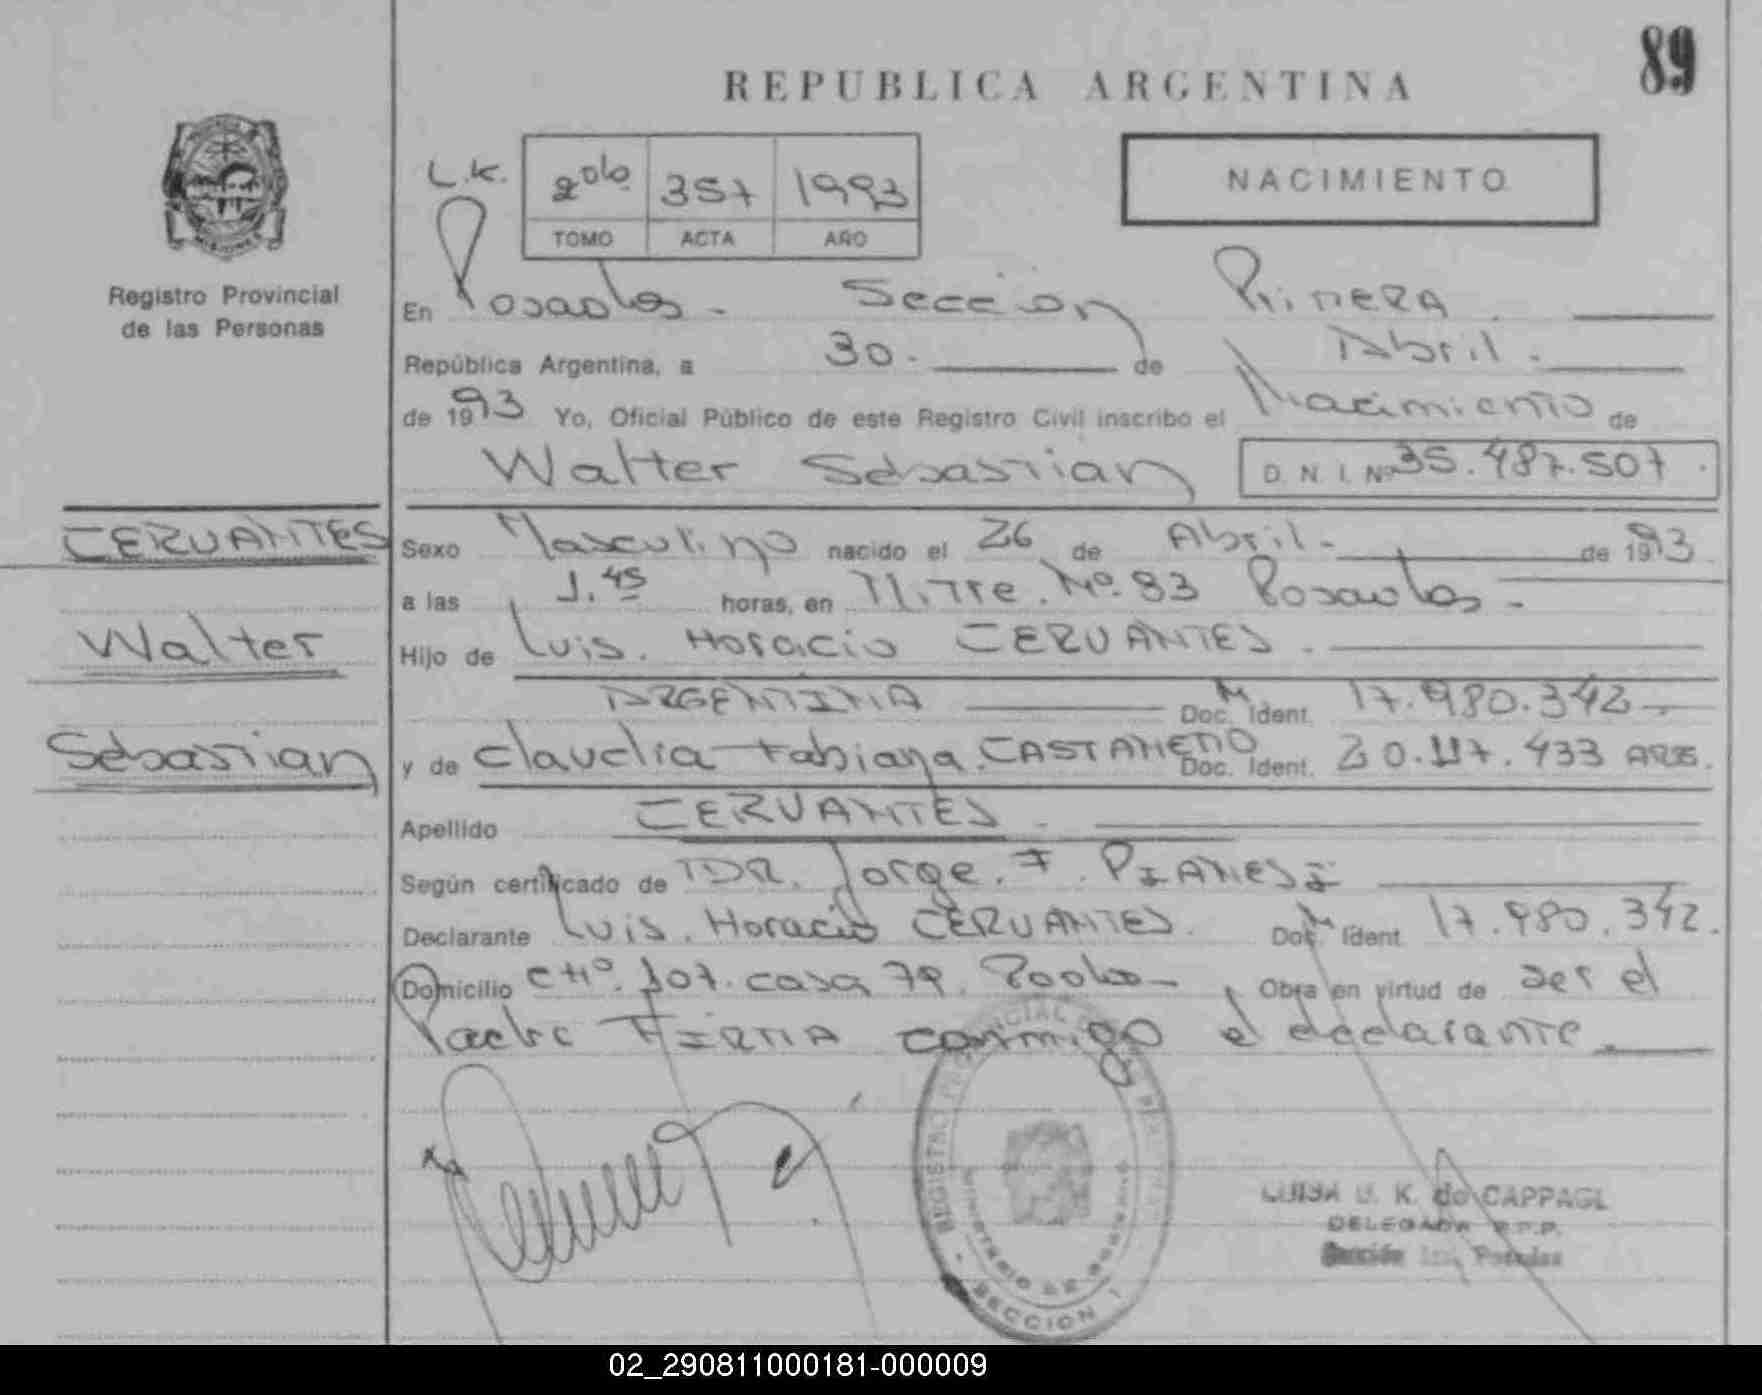 89
REPUBLICA ARGENTINA
L.K.
2do 357 1993
TOMO ACTA AÑO
NACIMIENTO
Registro Provincial
de las Personas
En Posadas - Sección Primera
República Argentina, a 30. de Abril.
de 1993 Yo, Oficial Público de este Registro Civil inscribo el Nacimiento de
Walter Sebastian D. N. I. Nº 35.487.507.
CERVANTES
Walter
Sebastian
Sexo Masculino nacido el 26 de Abril - de 1993
a las 1.45 horas, en Mitre. Nº. 93 Posadas -
Hijo de Luis. Horacio CERVANTES.
ARGENTINA M Doc. Ident. 17.980.342 -
y de Claudia Fabiana. CASTAÑEDO Doc. Ident. 20.117.433 ARG.
Apellido CERVANTES.
Según certificado de DR. Jorge. F. PIANESI
Declarante Luis. Horacio CERVANTES. M Doc. Ident 17.980.342.
Domicilio CHº. 107. casa 79. Pdas - Obra en virtud de ser el
Padre FIRMA conmigo el declarante.
REGISTRO PROVINCIAL DE LAS PERSONAS
MINISTERIO DE GOBIERNO
SECCION 1
LUISA K. de CAPPAGL
DELEGADA R.P.P.
Sección 1ra. Posadas
02_290811000181-000009